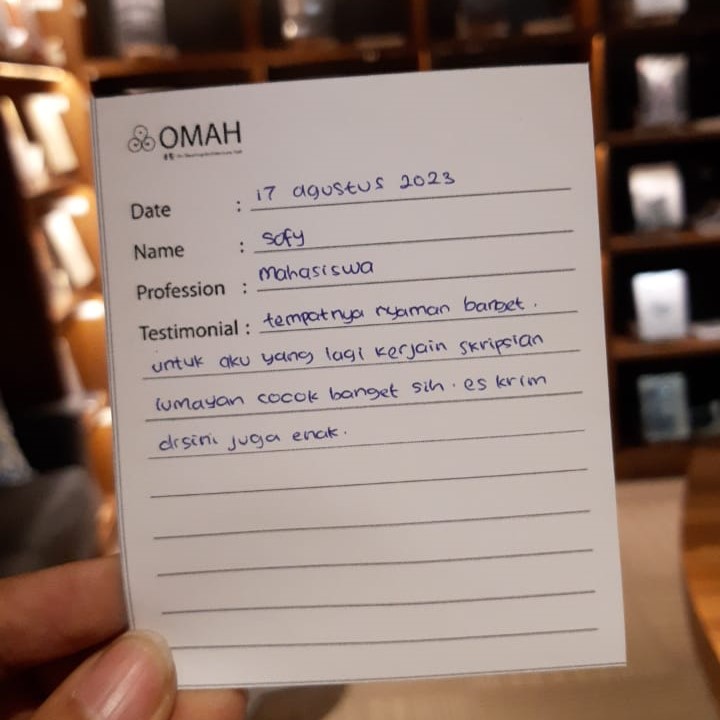 OMAH
Date : 17 agustus 2023
Name : sofy
Profession : mahasiswa
Testimonial : tempatnya nyaman banget.
untuk aku yang lagi kerjain skripsian
lumayan cocok banget sih. es krim
disini juga enak.